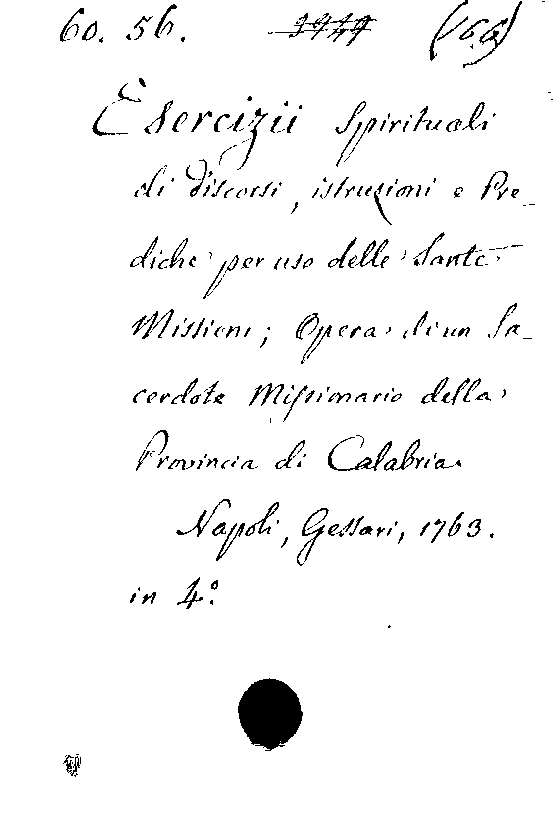 60. 56. (16.6)
Esercizii Spirituali
di discorsi, istruzioni e Pre_
diche per uso delle Sante
Missioni; Opera di un Sa_
cerdote Missionario della
Provincia di Calabria.
Napoli, Gessari, 1763.
in 4.º